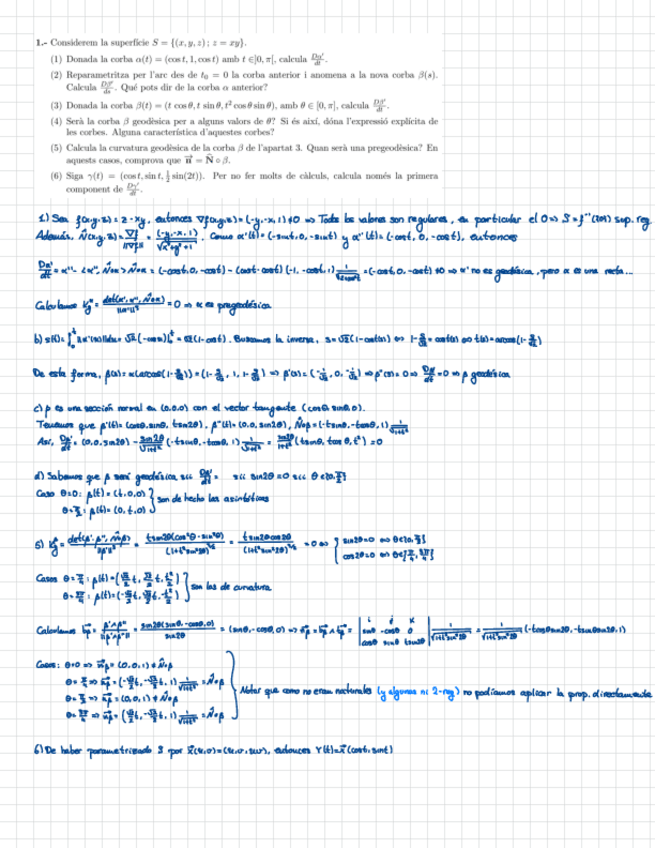 1.- Considerem la superfície S = {(x, y, z) ; z = xy}.
(1) Donada la corba α(t) = (cos t, 1, cos t) amb t ∈]0, π[, calcula Dα'/dt.
(2) Reparametritza per l'arc des de t₀ = 0 la corba anterior i anomena a la nova corba β(s).
Calcula Dβ'/ds. Qué pots dir de la corba α anterior?
(3) Donada la corba β(t) = (t cos θ, t sin θ, t² cos θ sin θ), amb θ ∈ [0, π[, calcula Dβ'/dt.
(4) Serà la corba β geodèsica per a alguns valors de θ? Si és així, dóna l'expressió explícita de
les corbes. Alguna característica d'aquestes corbes?
(5) Calcula la curvatura geodèsica de la corba β de l'apartat 3. Quan serà una pregeodèsica? En
aquests casos, comprova que n = N ∘ β.
(6) Siga γ(t) = (cos t, sin t, ½ sin(2t)). Per no fer molts de càlculs, calcula només la primera
component de Dγ'/dt.
1) Sea f(x,y,z) = z - xy, entonces ∇f(x,y,z) = (-y,-x,1) ≠ 0 ⇒ Todos los valores son regulares, en particular el 0 ⇒ S = f⁻¹({0}) sup. reg.
Además, N(x,y,z) = ∇f/||∇f|| = (-y,-x,1)/√(x²+y²+1). Como α'(t) = (-sint, 0, -sint) y α''(t) = (-cost, 0, -cost), entonces
Dα'/dt = α'' - <α'', N∘α> N∘α = (-cost, 0, -cost) - ≠ 0 ⇒ α no es geodésica, pero α es una recta...
Calculamos = det(α', α'', N∘α)/||α'||³ = 0 ⇒ α es pregeodésica
b) Buscamos la inversa, s = √2(1-cos(t)) ⇔ 1 - s/√2 = cos(t) ⇔ t(s) = arccos(1 - s/√2)
De esta forma, β(s) = α(arccos(1 - s/√2)) = (1 - s/√2, 1, 1 - s/√2) ⇒ β'(s) = (-1/√2, 0, -1/√2) ⇒ β''(s) = 0 ⇒ = 0 ⇒ β geodésica
c) β es una sección normal en (0,0,0) con el vector tangente (cosθ, sinθ, 0).
Tenemos que β'(t) = (cosθ, sinθ, t sin2θ), β''(t) = (0, 0, sin2θ), N∘β = (-t sinθ, -t cosθ, 1) 1/√(1+t²)
Así, Dβ'/dt = (0, 0, sin2θ) - sin2θ/√(1+t²) (-t sinθ, -t cosθ, 1) 1/√(1+t²) = sin2θ/(1+t²) (t sinθ, t cosθ, t²) = 0
d) Sabemos que β será geodésica sii Dβ'/dt = sii sin2θ = 0 sii θ ∈ {0, π/2}
Caso θ = 0 : β(t) = (t, 0, 0)
θ = π/2 : β(t) = (0, t, 0) } son de hecho las asintóticas
5) = det(β', β'', N∘β)/||β'||³ = t sin2θ(cos²θ - sin²θ)/(1+t² sin²2θ)^{3/2} = t sin2θ cos2θ/(1+t² sin²2θ)^{3/2} = 0 ⇔ { sin2θ = 0 ⇔ θ ∈ {0, π/2}
cos2θ = 0 ⇔ θ ∈ {π/4, 3π/4}
Casos θ = π/4 : β(t) = (√2/2 t, √2/2 t, t²/2)
θ = 3π/4 : β(t) = (-√2/2 t, √2/2 t, -t²/2) } son las de curvatura
Calculamos = β'∧β''/||β'∧β''|| = sin2θ(sinθ, -cosθ, 0)/sin2θ = (sinθ, -cosθ, 0) ⇒ = 1/√(1+t² sin²2θ) (-t cosθ sin2θ, -t sinθ sin2θ, 1)
Casos: θ = 0 ⇒ = (0, 0, 1) ≠ N∘β
θ = π/4 ⇒ = (-√2/2 t, -√2/2 t, 1) 1/√(1+t²) = N∘β
θ = π/2 ⇒ = (0, 0, 1) ≠ N∘β
θ = 3π/4 ⇒ = N∘β
Notar que como no eran naturales (y algunas ni 2-reg) no podíamos aplicar la prop. directamente
6) De haber parametrizado S por x(u,v) = (u, v, uv), entonces γ(t) = x(cost, sint)